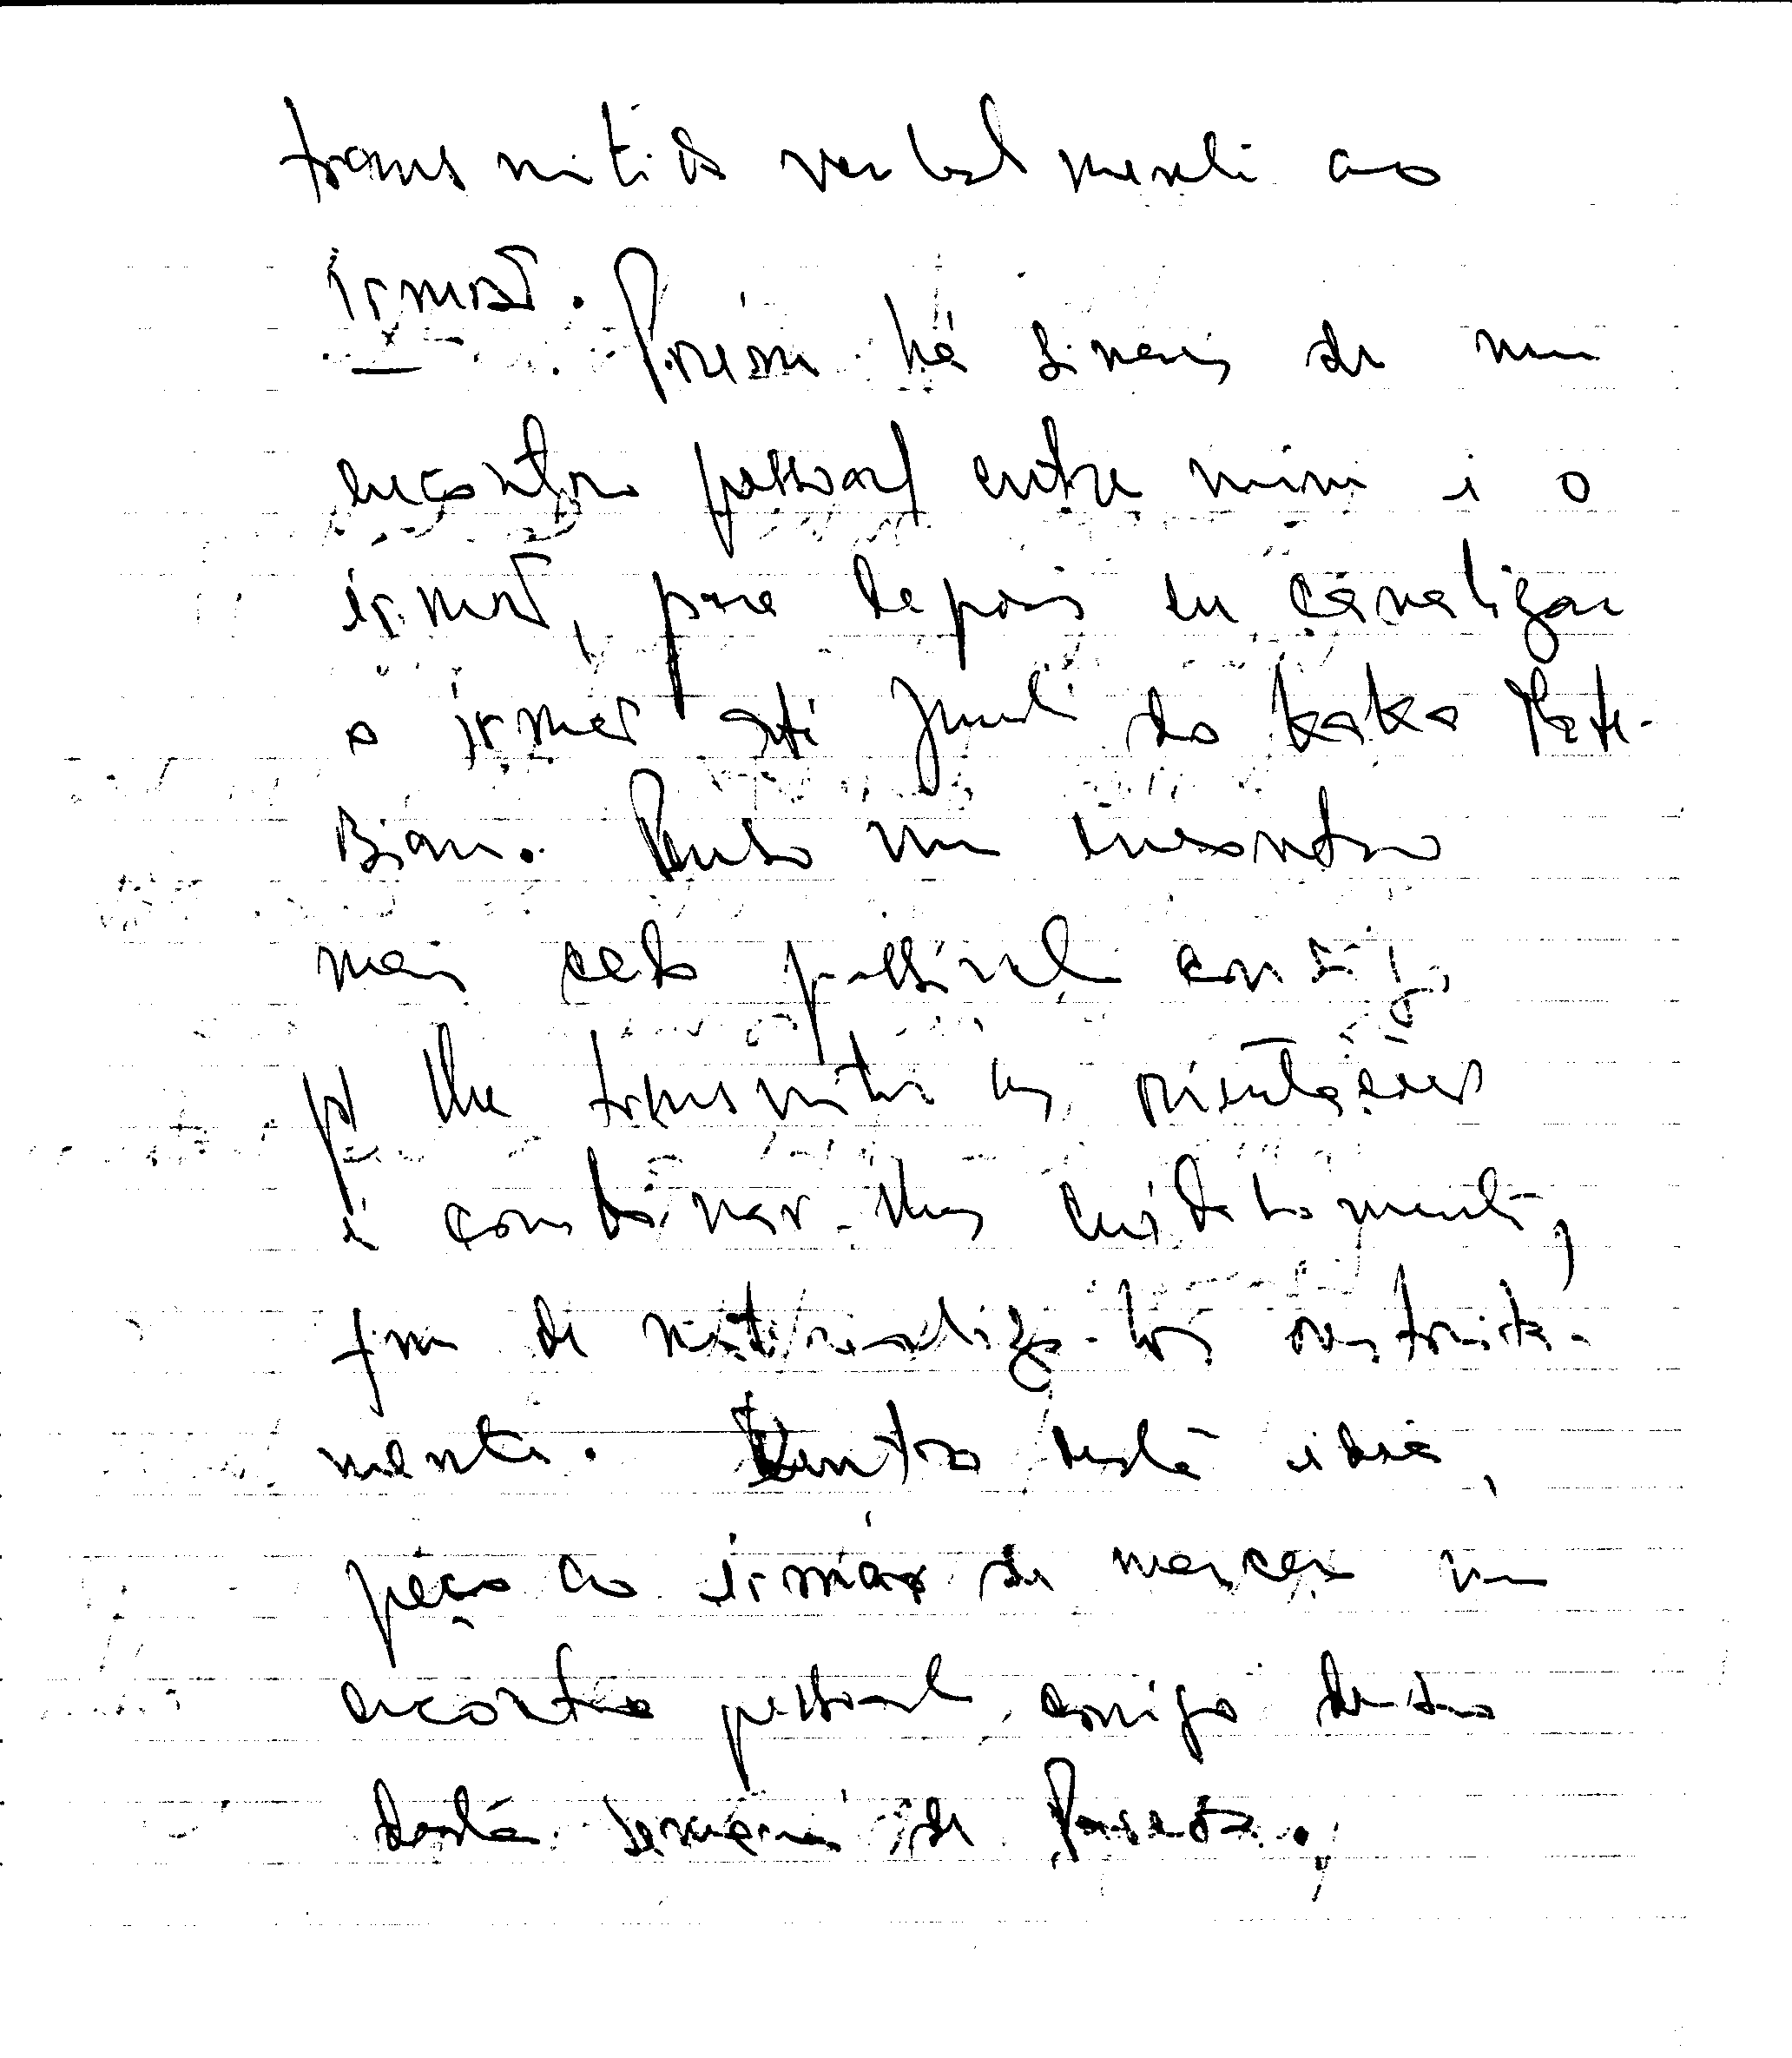 transmitido verbalmente ao
irmão.
Porém há sinais de um
encontro pessoal entre mim i o
irmão, para depois eu canalizar
o irmão até junto do kaka Mate-
Bian. Penso um encontro
mais cedo possível consigo
p/ lhe transmitir as orientações
i combinar-lhes cuidadosamente,
fim de materializa-los
mente. Dentro desta ideia,
peço ao irmão de marcar um
encontro pessoal comigo dentro
desta semana de